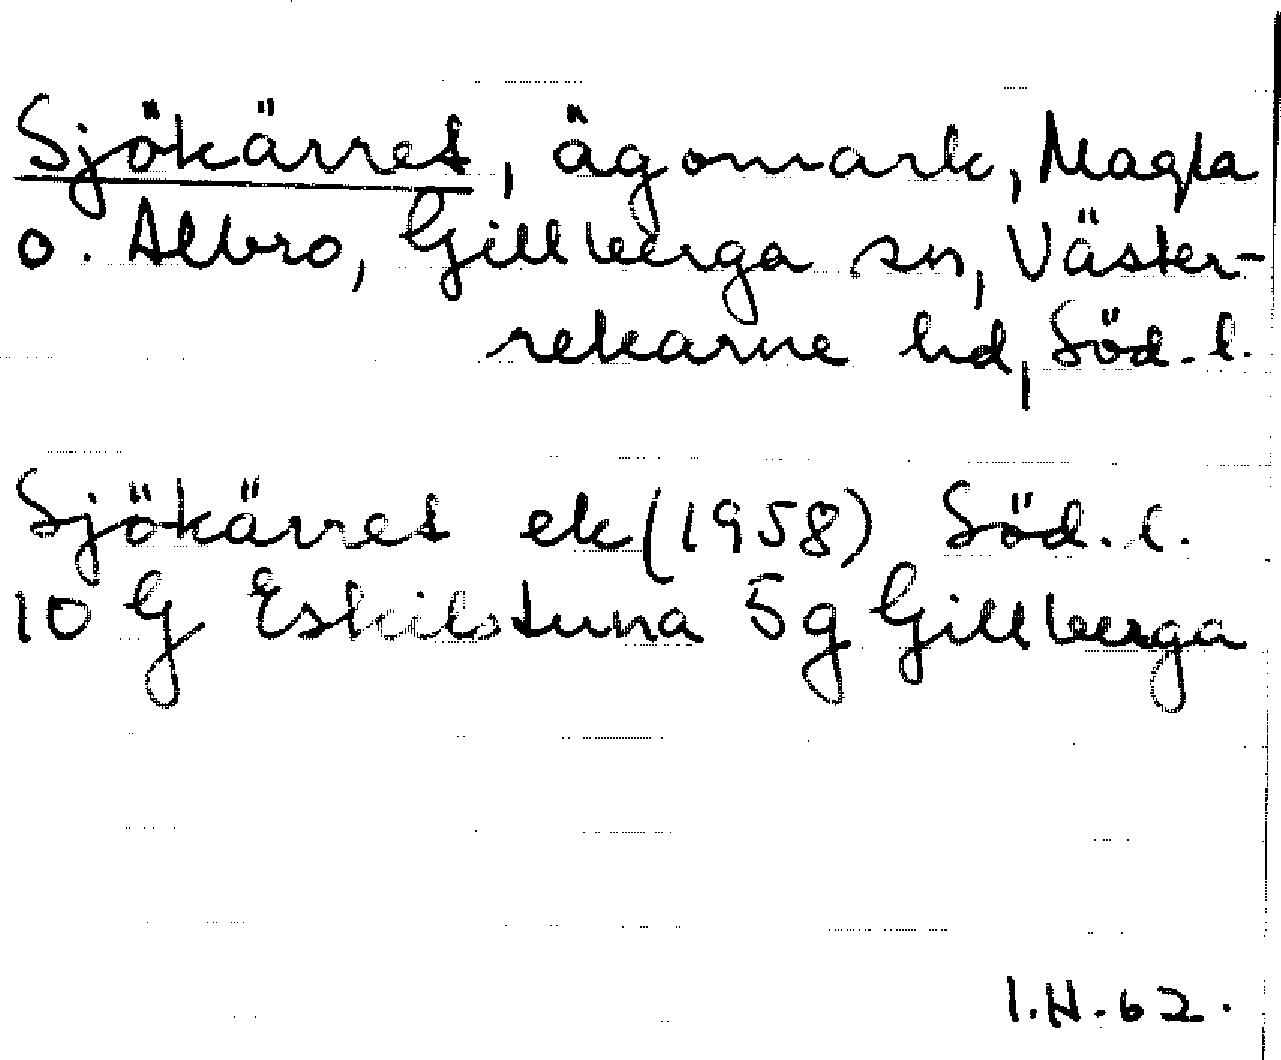 Sjökärret, ägomark, Magla
o. Albro, Gillberga sn, Väster-
rekarne hd, Söd. l.
Sjökärret ek (1958) Söd. l.
10 G Eskilstuna 5 g Gillberga
I.H. 62.